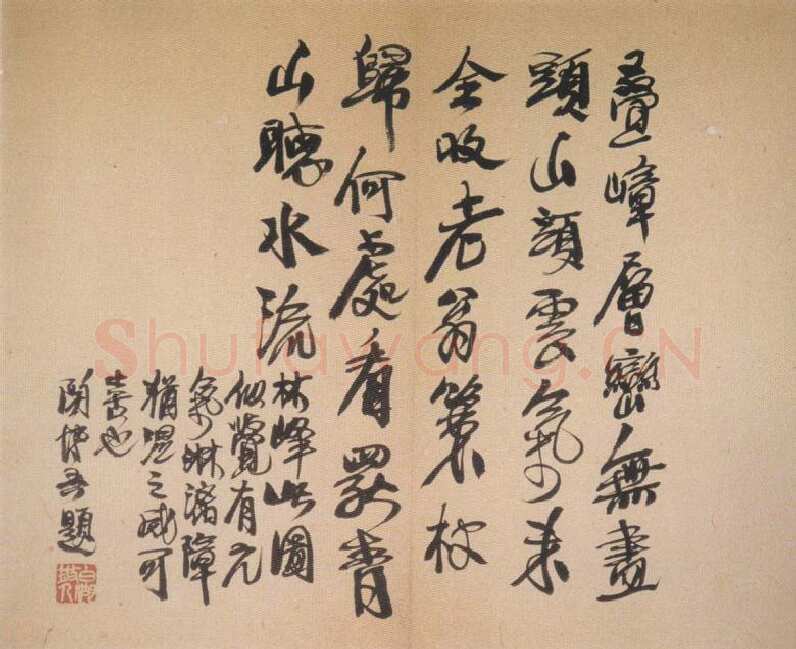 疊嶂層巒無盡
頭山頭雲氣未
全收老翁策杖
歸何處看罷青
山聽水流
林峰此圖
似覺有元
氣淋漓障
猶濕之感可
喜也
題
Shufawang.CN